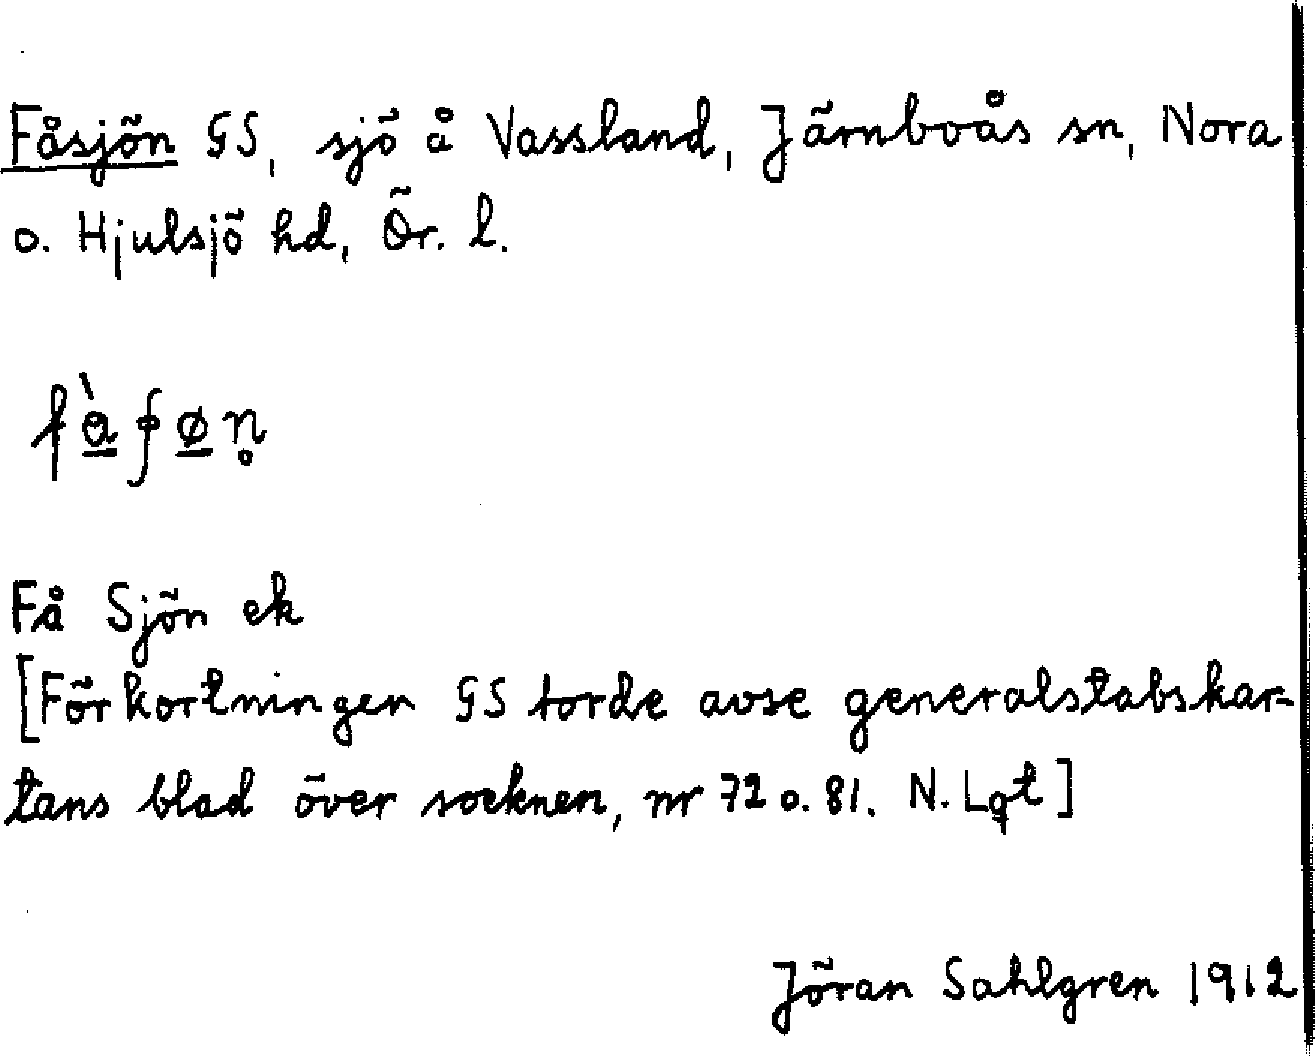 Fåsjön GS, sjö å Vassland, Järnboås sn, Nora
o. Hjulsjö hd, Ör. l.
Få Sjön ek
[Förkortningen GS torde avse generalstabskar-
tans blad över socknen, nr 72 o. 81. N. Lqt]
Jöran Sahlgren 1912